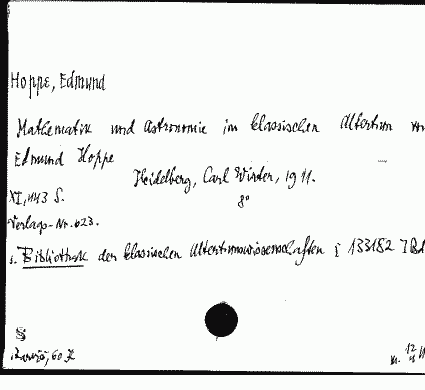 Hoppe, Edmund
Mathematik und Astronomie im klassischen Altertum von
Edmund Hoppe
Heidelberg, Carl Winter, 1911.
XI, 443 S. 8°
Verlags-Nr. 623.
s. Bibliothek der klassischen Altertumswissenschaften [ 133182 ] Bd
S